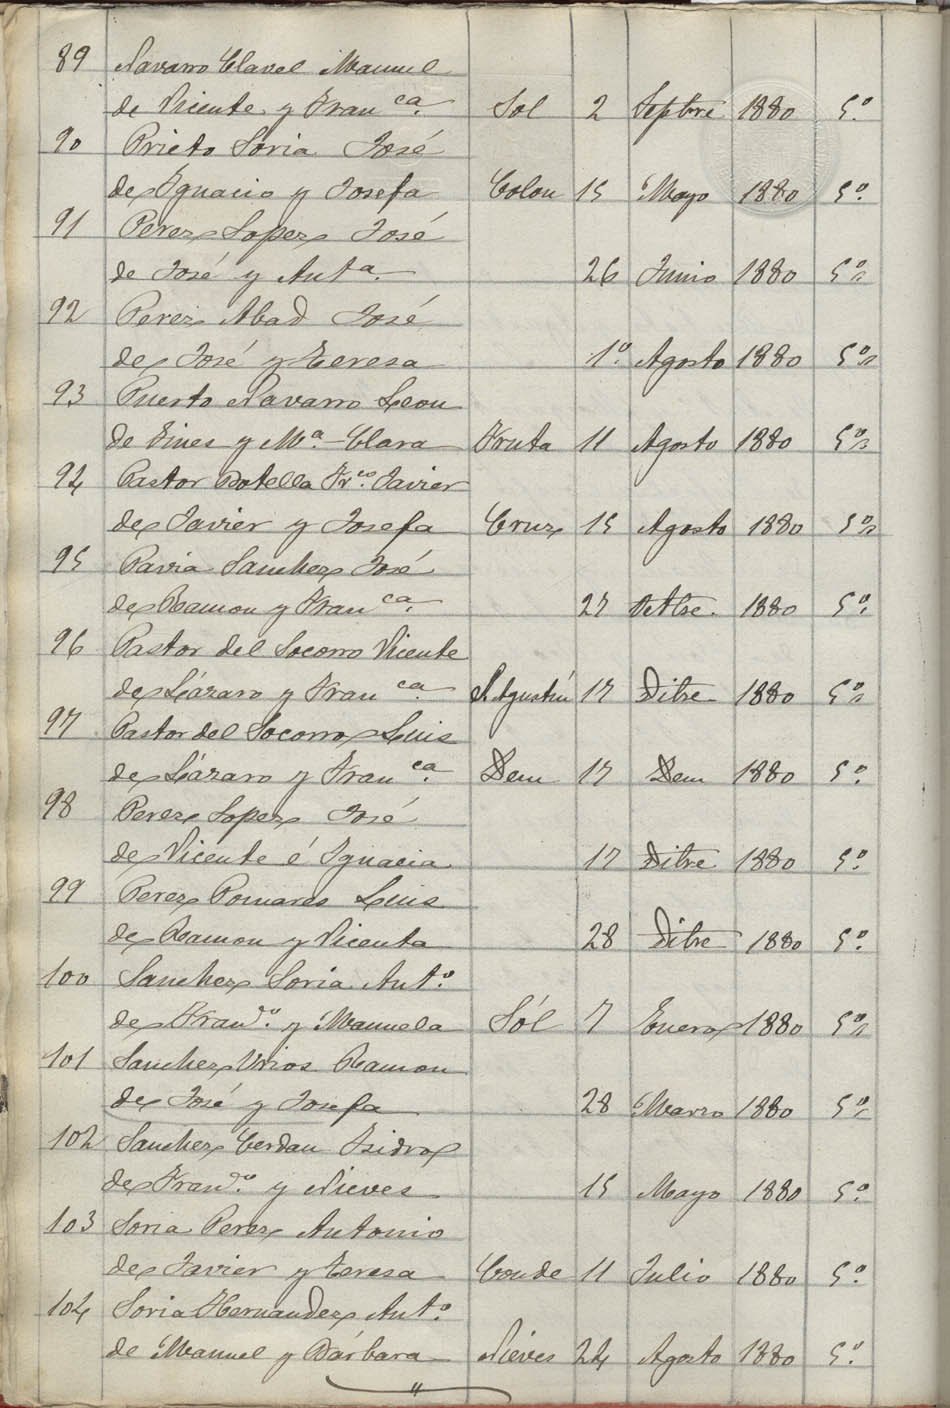 89 Navarro Clavel Manuel
de Vicente y Franca. Sol 2 Septbre 1880 5º.
90 Prieto Soria José
de Ignacio y Josefa Colon 15 Mayo 1880 5º.
91 Perez Lopez José
de José y Anta. 26 Junio 1880 5º
92 Perez Abad José
de José y Teresa 1º. Agosto 1880 5º
93 Puerto Navarro Leon
de Gines y Mª. Clara Fruta 11 Agosto 1880 5º
94 Pastor Botella Frco. Javier
de Javier y Josefa Cruz 15 Agosto 1880 5º
95 Pavia Sanchez José
de Ramon y Franca. 27 Octbre. 1880 5º.
96 Pastor del Socorro Vicente
de Lázaro y Franca. S. Agustin 17 Dibre 1880 5º
97 Pastor del Socorro Luis
de Lázaro y Franca. Dem 17 Dem 1880 5º.
98 Perez Lopez José
de Vicente é Ignacia 17 Dibre 1880 5º.
99 Perez Pomares Luis
de Ramon y Vicenta 28 Dibre 1880 5º.
100 Sanchez Soria Antº.
de Franco. y Manuela Sól 7 Enero 1880 5º
101 Sanchez Urios Ramon
de José y Josefa 28 Marzo 1880 5º
102 Sanchez Cerdan Isidro
de Franco. y Nieves 15 Mayo 1880 5º.
103 Soria Perez Antonio
de Javier y Teresa Conde 11 Julio 1880 5º.
104 Soria Hernandez Antº.
de Manuel y Bárbara Nieves 24 Agosto 1880 5º.